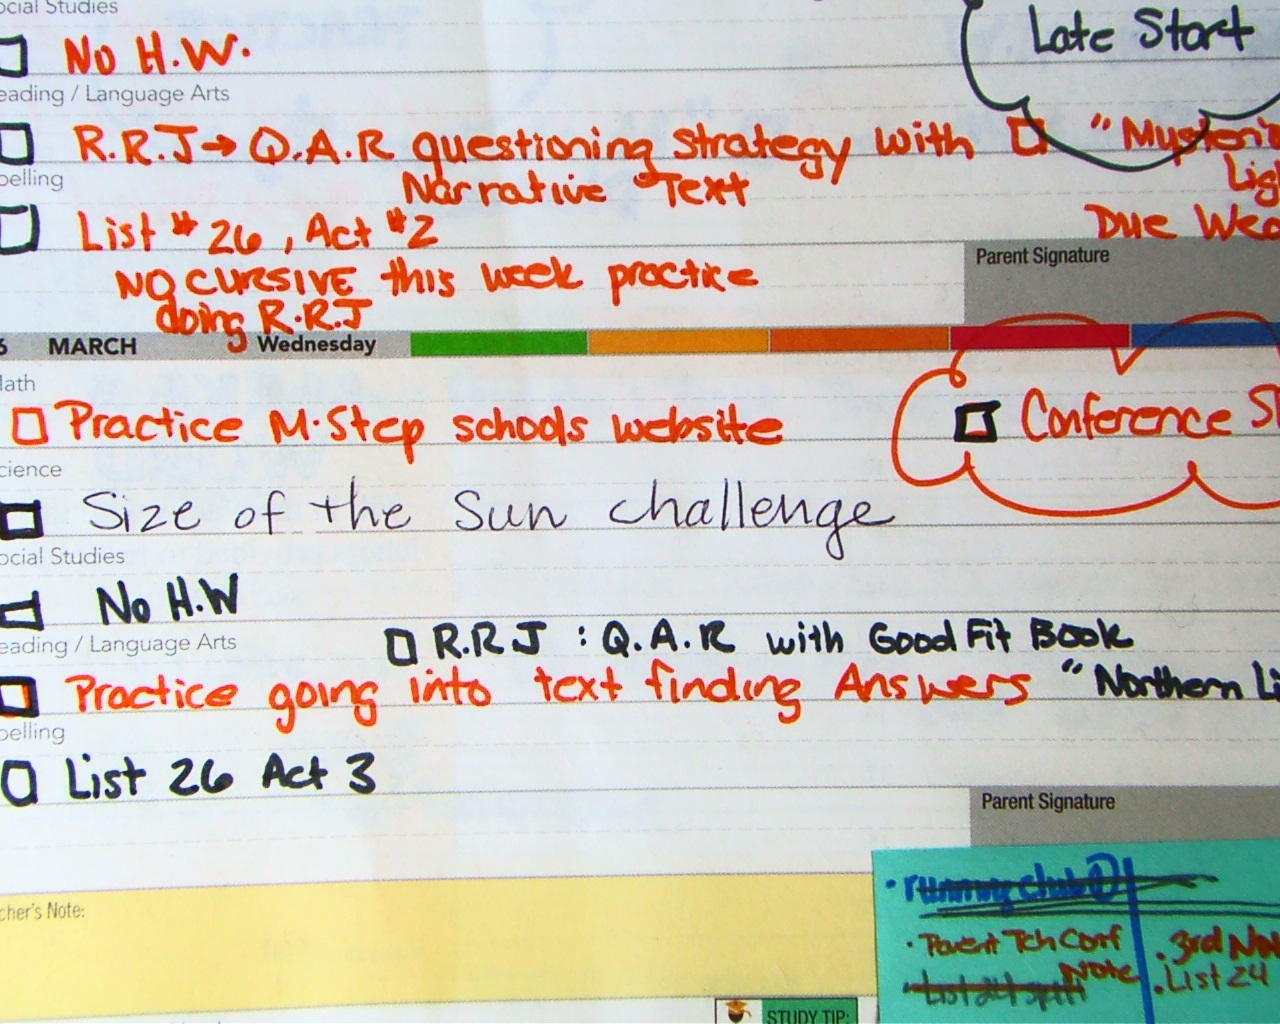 ocial Studies
Late Start
No H.W.
eading / Language Arts
R.R.J→ Q.A.R questioning strategy with "Mysteri
pelling
Narrative Text
Lig
List #26, Act #2
Due Wed
NO CURSIVE this week practice
Parent Signature
doing R.R.J
6 MARCH Wednesday
Math
Practice M-Step schools website
Conference St
cience
Size of the Sun challenge
ocial Studies
No H.W
eading / Language Arts
R.R.J : Q.A.R with Good Fit Book
Practice going into text finding Answers "Northern Li
pelling
List 26 Act 3
Parent Signature
cher's Note:
running club
Parent Tch Conf
Note
List 24 spell
3rd Nov
List 24
STUDY TIP: